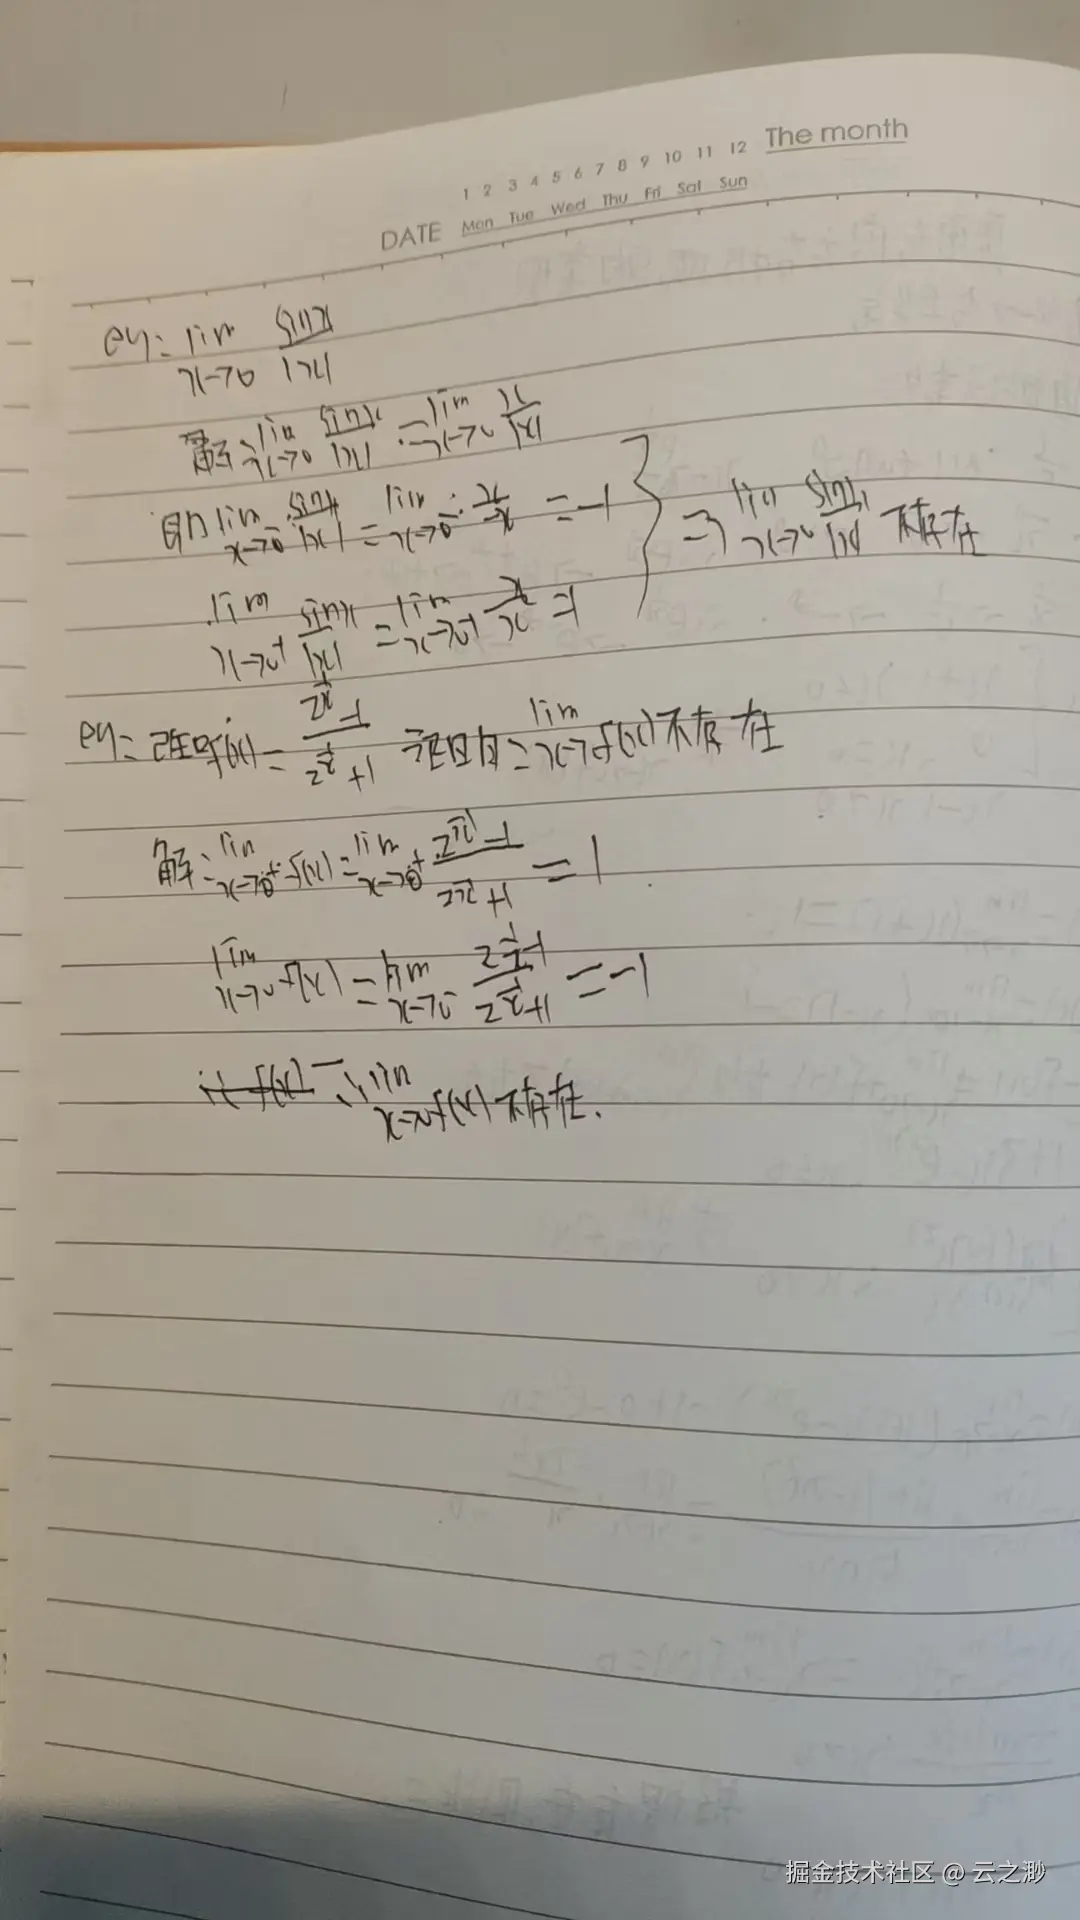 The month
1 2 3 4 5 6 7 8 9 10 11 12
DATE Mon Tue Wed Thu Fri Sat Sun
eg: lim x→0 sinx/|x|
解: lim x→0 sinx/|x| = lim x→0 x/|x|
即 lim x→0⁻ sinx/|x| = lim x→0⁻ x/-x = -1
lim x→0⁺ sinx/|x| = lim x→0⁺ x/x = 1
} ⇒ lim x→0 sinx/|x| 不存在
eg: 设 f(x) = (2^(1/x) - 1)/(2^(1/x) + 1) 证明: lim x→0 f(x) 不存在
解: lim x→0⁺ f(x) = lim x→0⁺ (2^(1/x) - 1)/(2^(1/x) + 1) = 1
lim x→0⁻ f(x) = lim x→0⁻ (2^(1/x) - 1)/(2^(1/x) + 1) = -1
∴ lim x→0 f(x) 不存在.
掘金技术社区 @ 云之渺